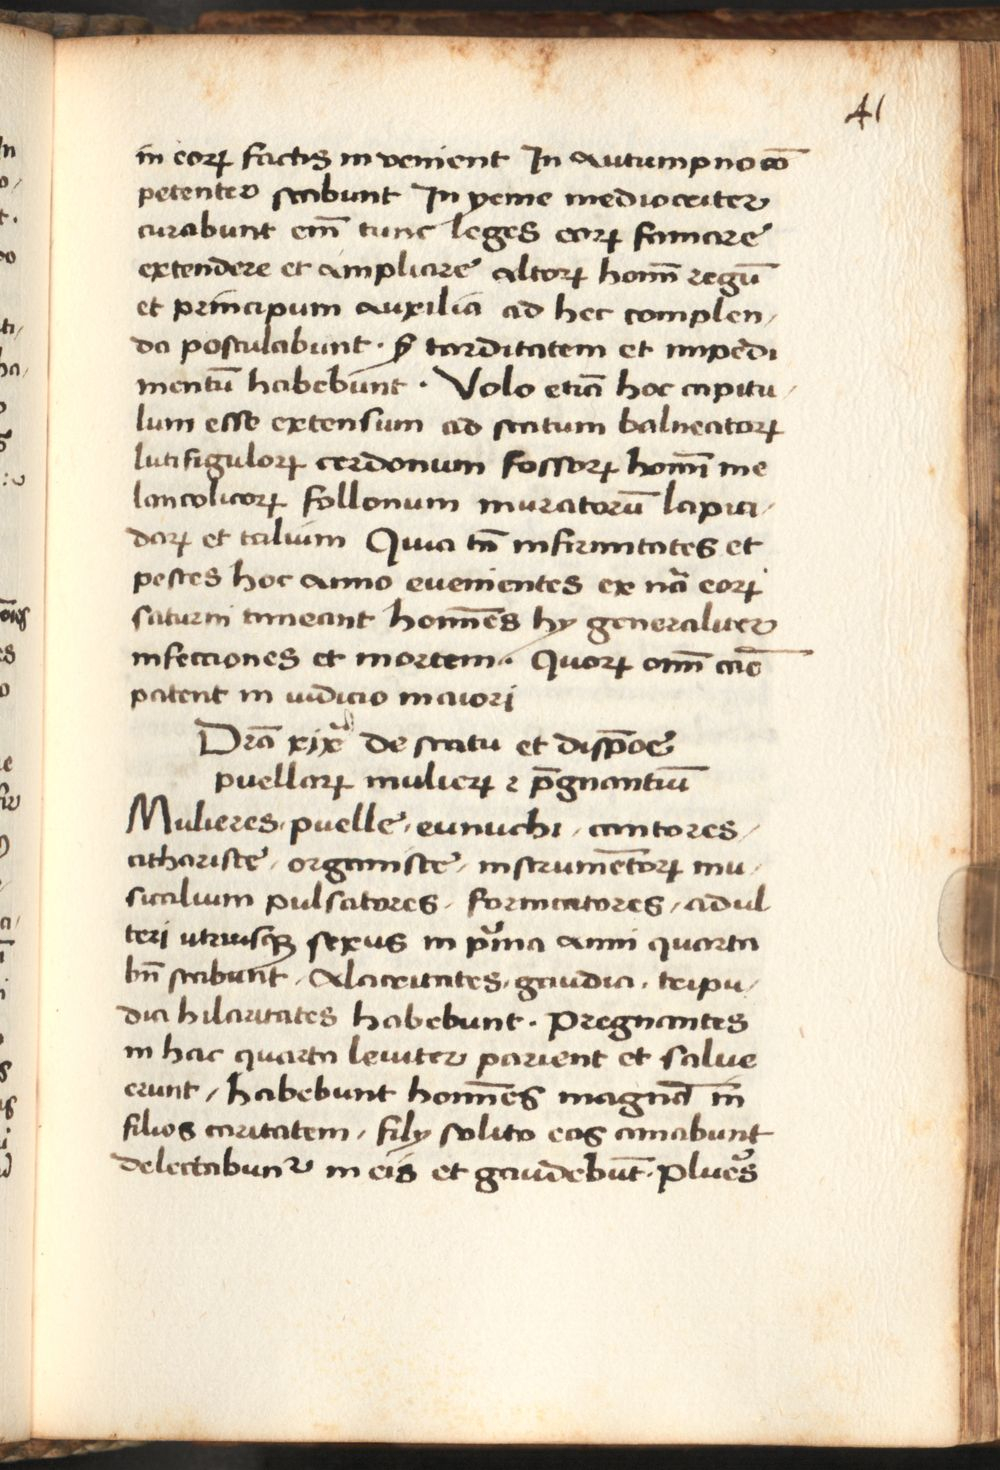 41
in eorꝝ factis invenient In autumpno cō
petenter stabunt In yeme mediocriter
curabunt em̄ tunc leges eorꝝ famare
extendere et ampliare altorꝝ hom̄ regū
et principum auxilia ad hec complen/
da postulabunt · tarditatem et impedi
mentū habebunt · Volo etiā hoc capitu/
lum esse extensum ad statum balneatorꝝ
lutifigulorꝝ cerdonum fossorꝝ homī me
lancolicorꝝ follonum muratorū lapici/
darꝝ et talium Quia tn̄ infirmitates et
pestes hoc anno evenientes ex nā eorꝝ
saturni timeant homīes hy generaliter
infecciones et mortem · Quorꝝ om̄ cāe
patent in iudicio maiori
Drā xixᵃ de statu et disp̄oe
puellarꝝ mulierꝝ ⁊ p̄gnantiū
Mulieres · puelle · eunuchi · cantores /
citharistē · organistē · instrumētorꝝ mu/
sicalium pulsatores · fornicatores / adul
teri utriusqꝫ sexus in pͥma anni quarta
bn̄ stabunt · Alacritates · gaudia · tripu/
dia hilaritates habebunt · Pregnantes
in hac quarta leviter parient et salve
erunt / habebunt homīes magnā in
filios caritatem / filÿ solito eos amabunt
delectabunt᷑ in eis et gaudebūt · Plures